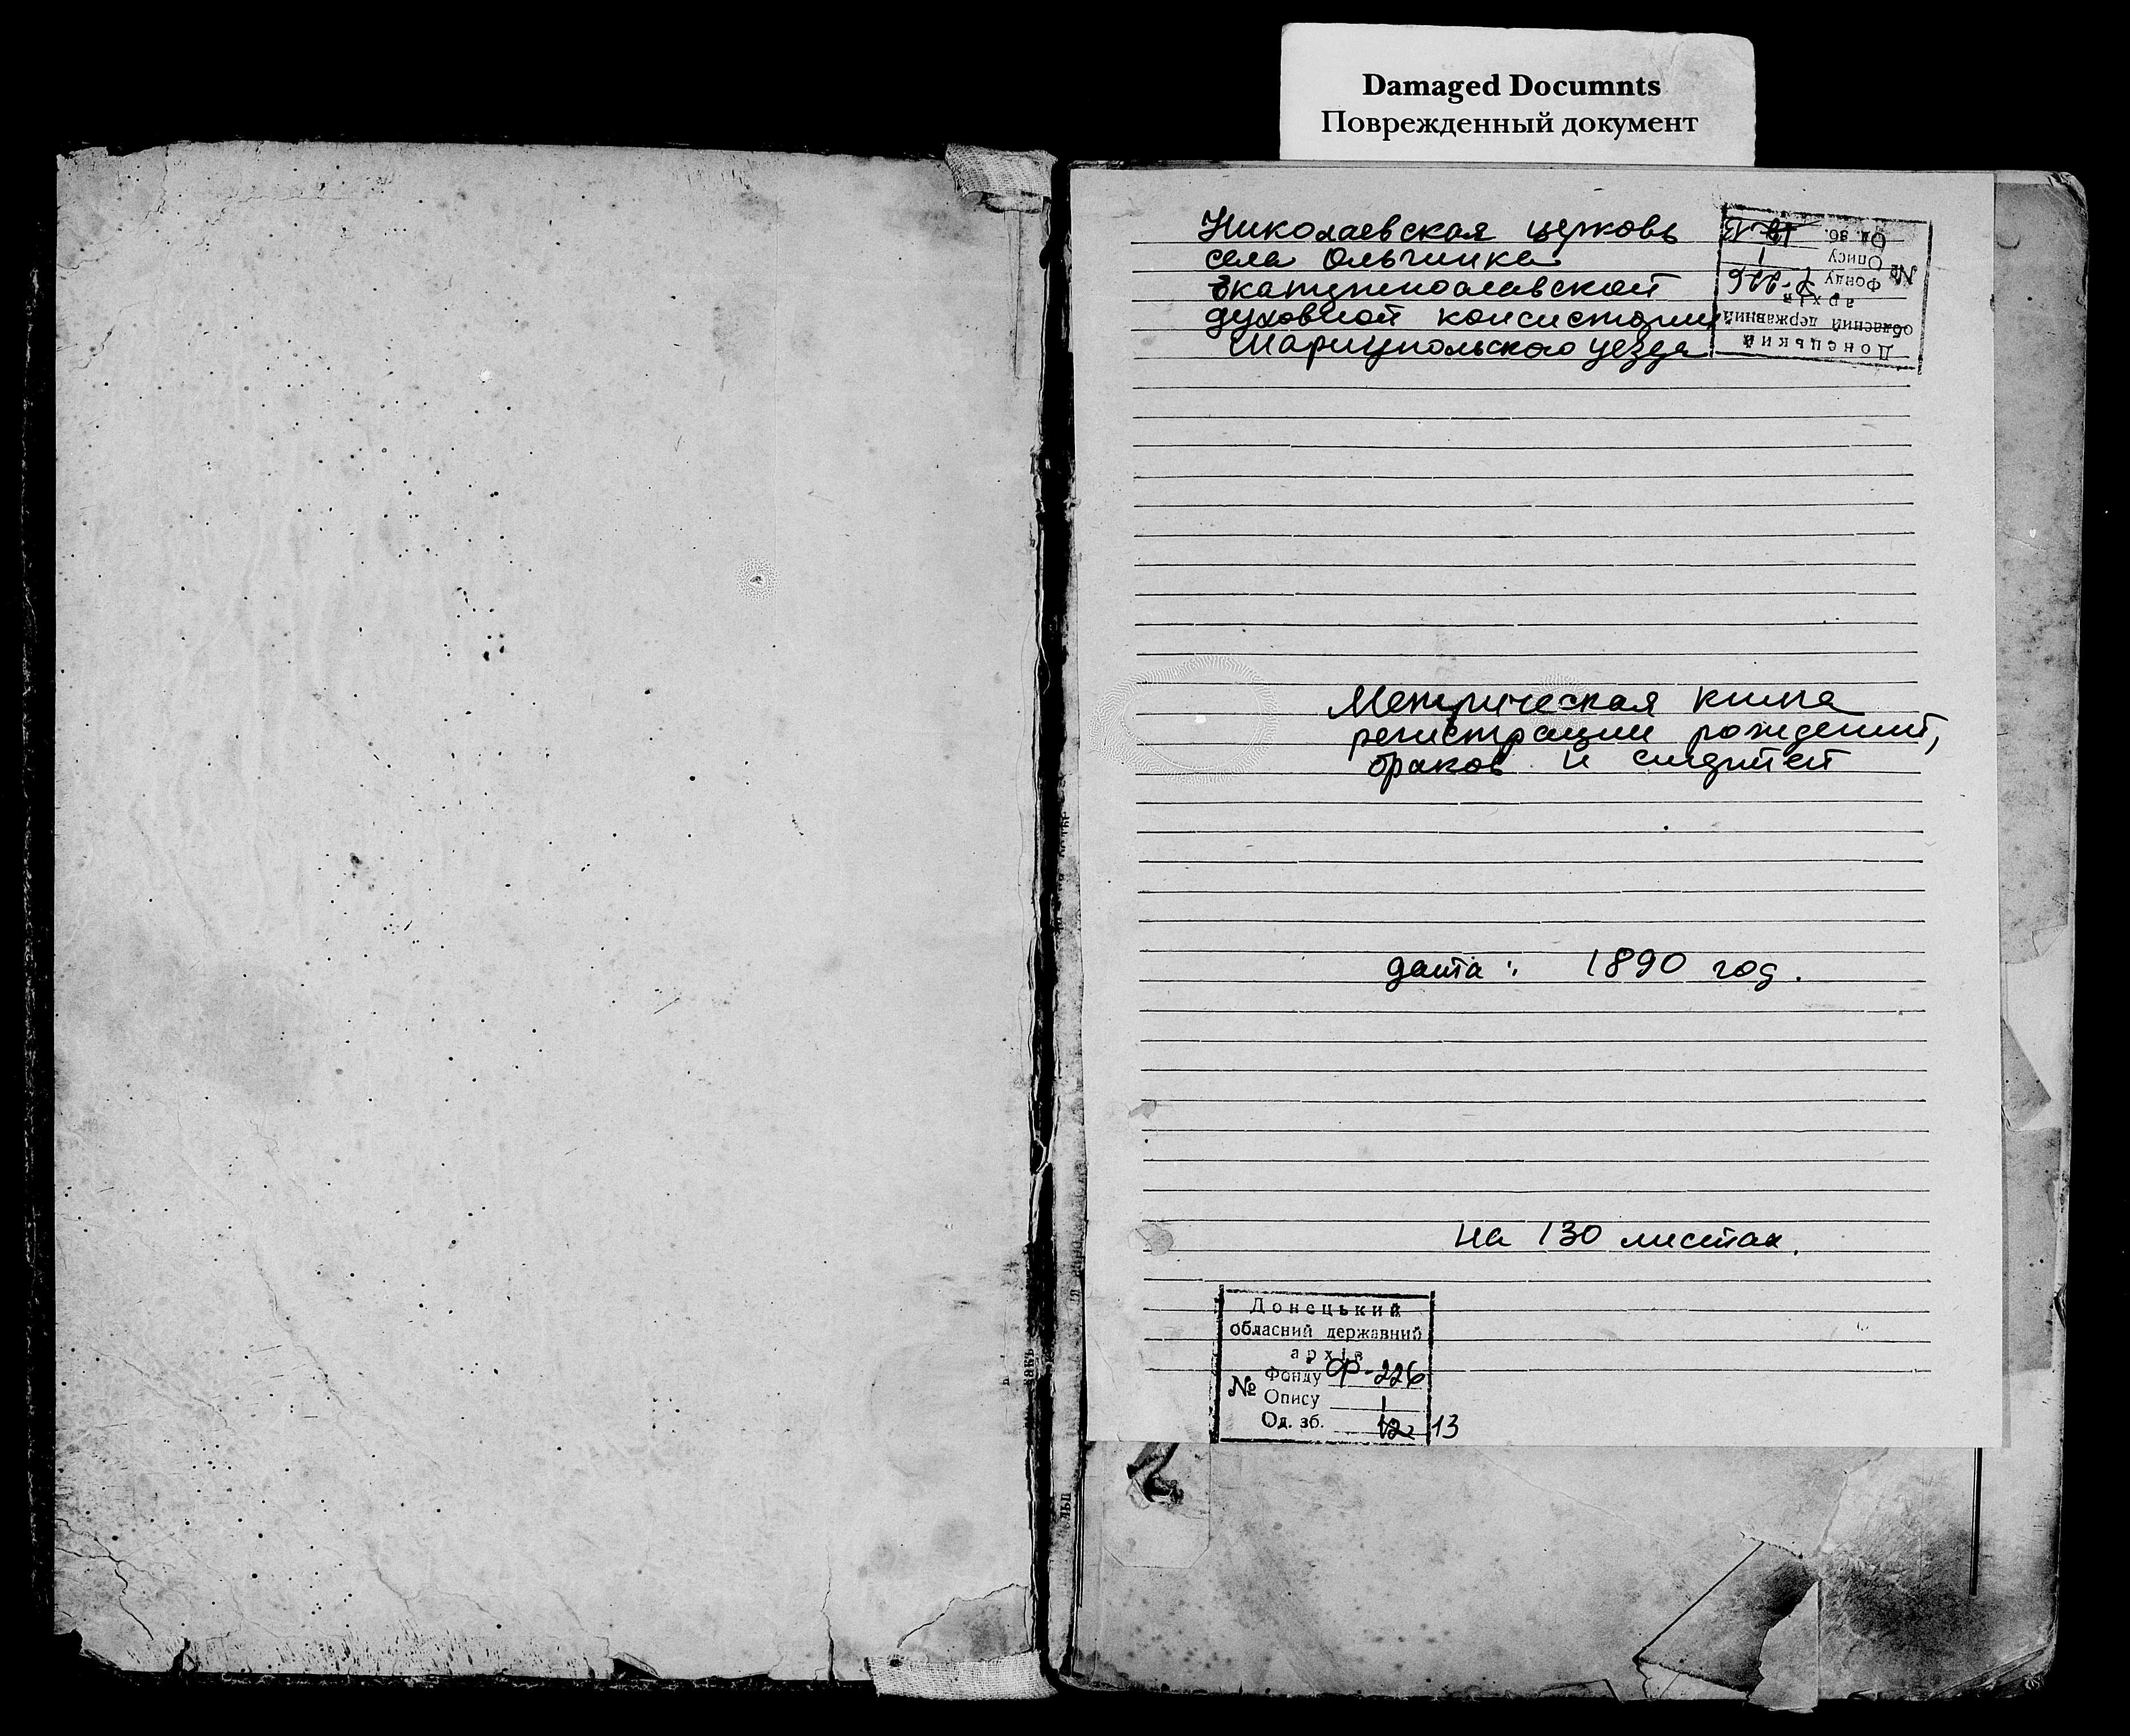 Damaged Documnts
Поврежденный документ
Николаевская церковь
села Ольгинка
Екатеринославской
духовной консистории
Мариупольского уезда
Донецький
обласний державний
архів
№ Фонду
Опису 1
Од. зб.
Метрическая книга
регистрации рождений,
браков и смертей
дата: 1890 год.
на 130 листах.
Донецький
обласний державний
архів
№ Фонду Ф-226
Опису 1
Од. зб. 12 13